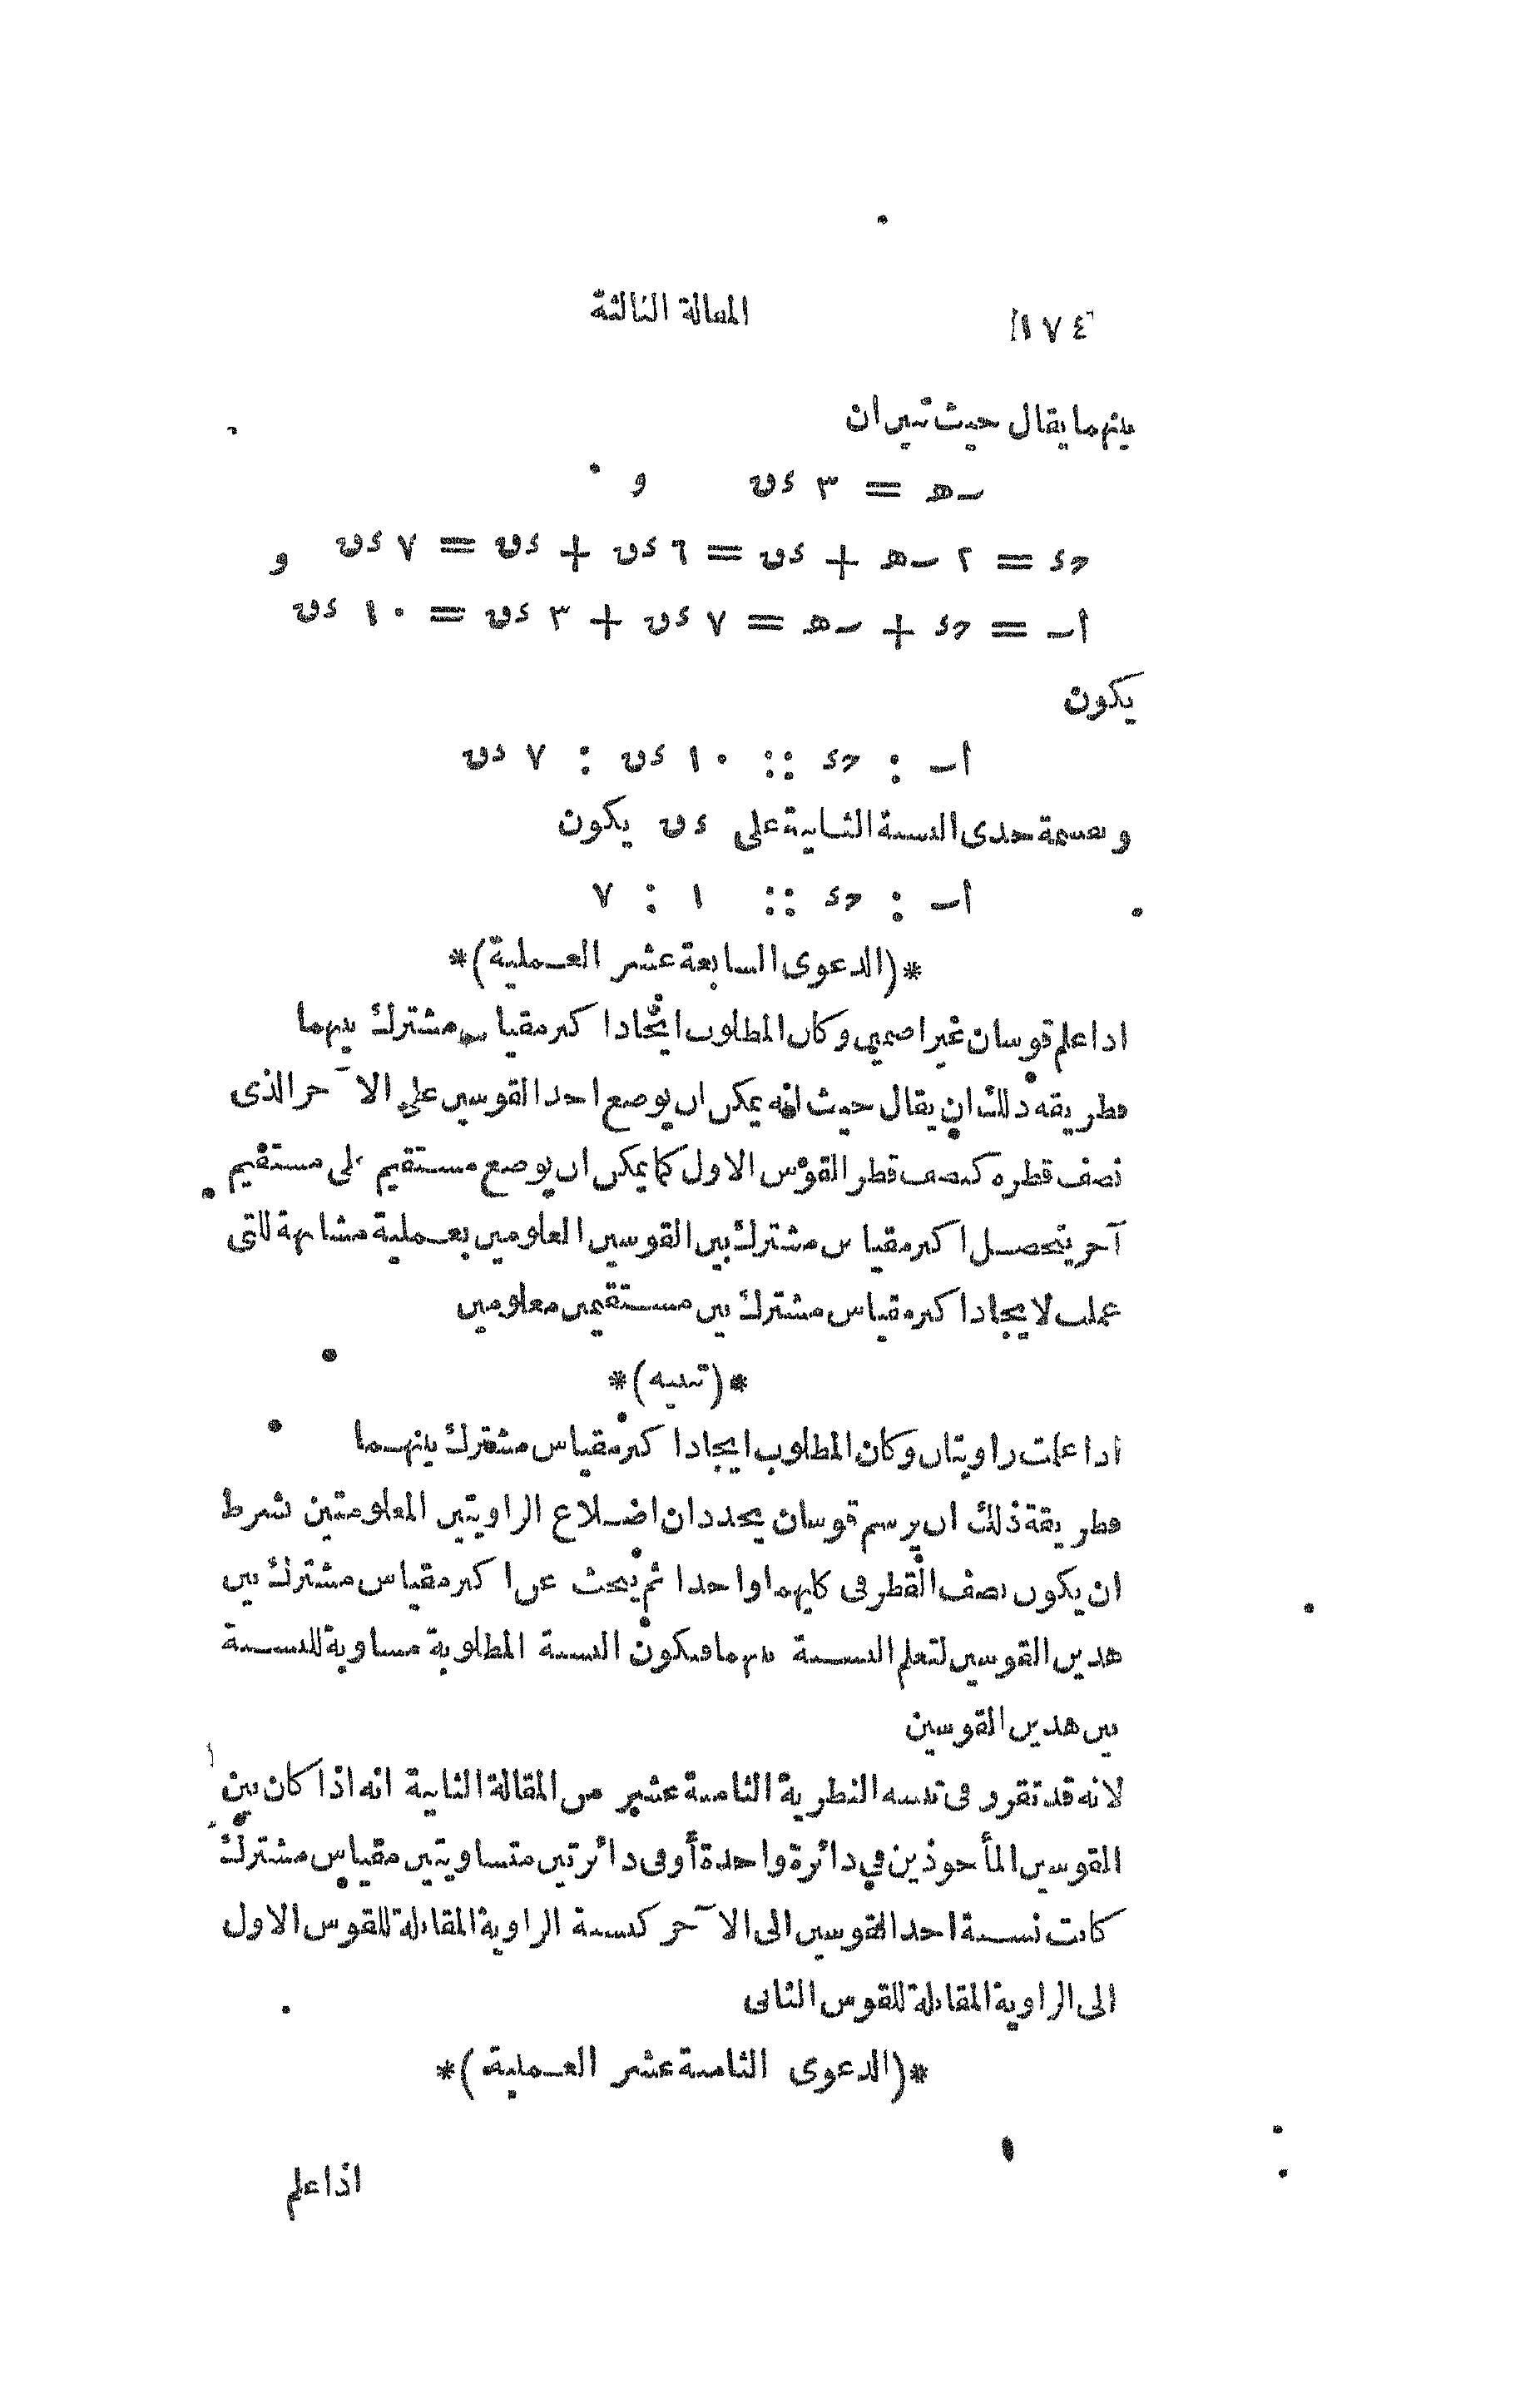 ١٧٤ المقالة الثالثة
بينهما يقال حيث تبين ان
ـه = ٣ ءں و
حء = ٢ ـه + ءں = ٦ ءں + ءں = ٧ ءں و
اـ = حء + ـه = ٧ ءں + ٣ ءں = ١٠ ءں
يكون
اـ : حء :: ١٠ ءں : ٧ ءں
وبقسمة حدى النسبة الثانية على ءں يكون
اـ : حء :: ١ : ٧
*(الدعوى السابعة عشر العملية)*
اذا علم قوسان غير اصمين وكان المطلوب ايجاد اكبر مقياس مشترك بينهما
فطريقه ذلك ان يقال حيث انه يمكن ان يوضع احد القوسين على الآخر الذى
نصف قطره كنصف قطر القوس الاول كما يمكن ان يوضع مستقيم على مستقيم
آخر يتحصل اكبر مقياس مشترك بين القوسين المعلومين بعملية مشابهة للتى
عملت لايجاد اكبر مقياس مشترك بين مستقيمين معلومين
*(تنبيه)*
اذا علمت زاويتان وكان المطلوب ايجاد اكبر مقياس مشترك بينهما
فطريقة ذلك ان يرسم قوسان يحددان اضلاع الزاويتين المعلومتين بشرط
ان يكون نصف القطر فى كليهما واحدا ثم يبحث عن اكبر مقياس مشترك بين
هذين القوسين لتعلم النسبة بينهما فيكون النسبة المطلوبة مساوية للنسبة
بين هذين القوسين
لانه قد تقرر فى تنبيه النظرية الثامنة عشر من المقالة الثانية انه اذا كان بين
القوسين المأخوذين فى دائرة واحدة أو فى دائرتين متساويتين مقياس مشترك
كانت نسبة احد القوسين الى الآخر كنسبة الزاوية المقابلة للقوس الاول
الى الزاوية المقابلة للقوس الثانى
*(الدعوى الثامنة عشر العملية)*
اذا علم